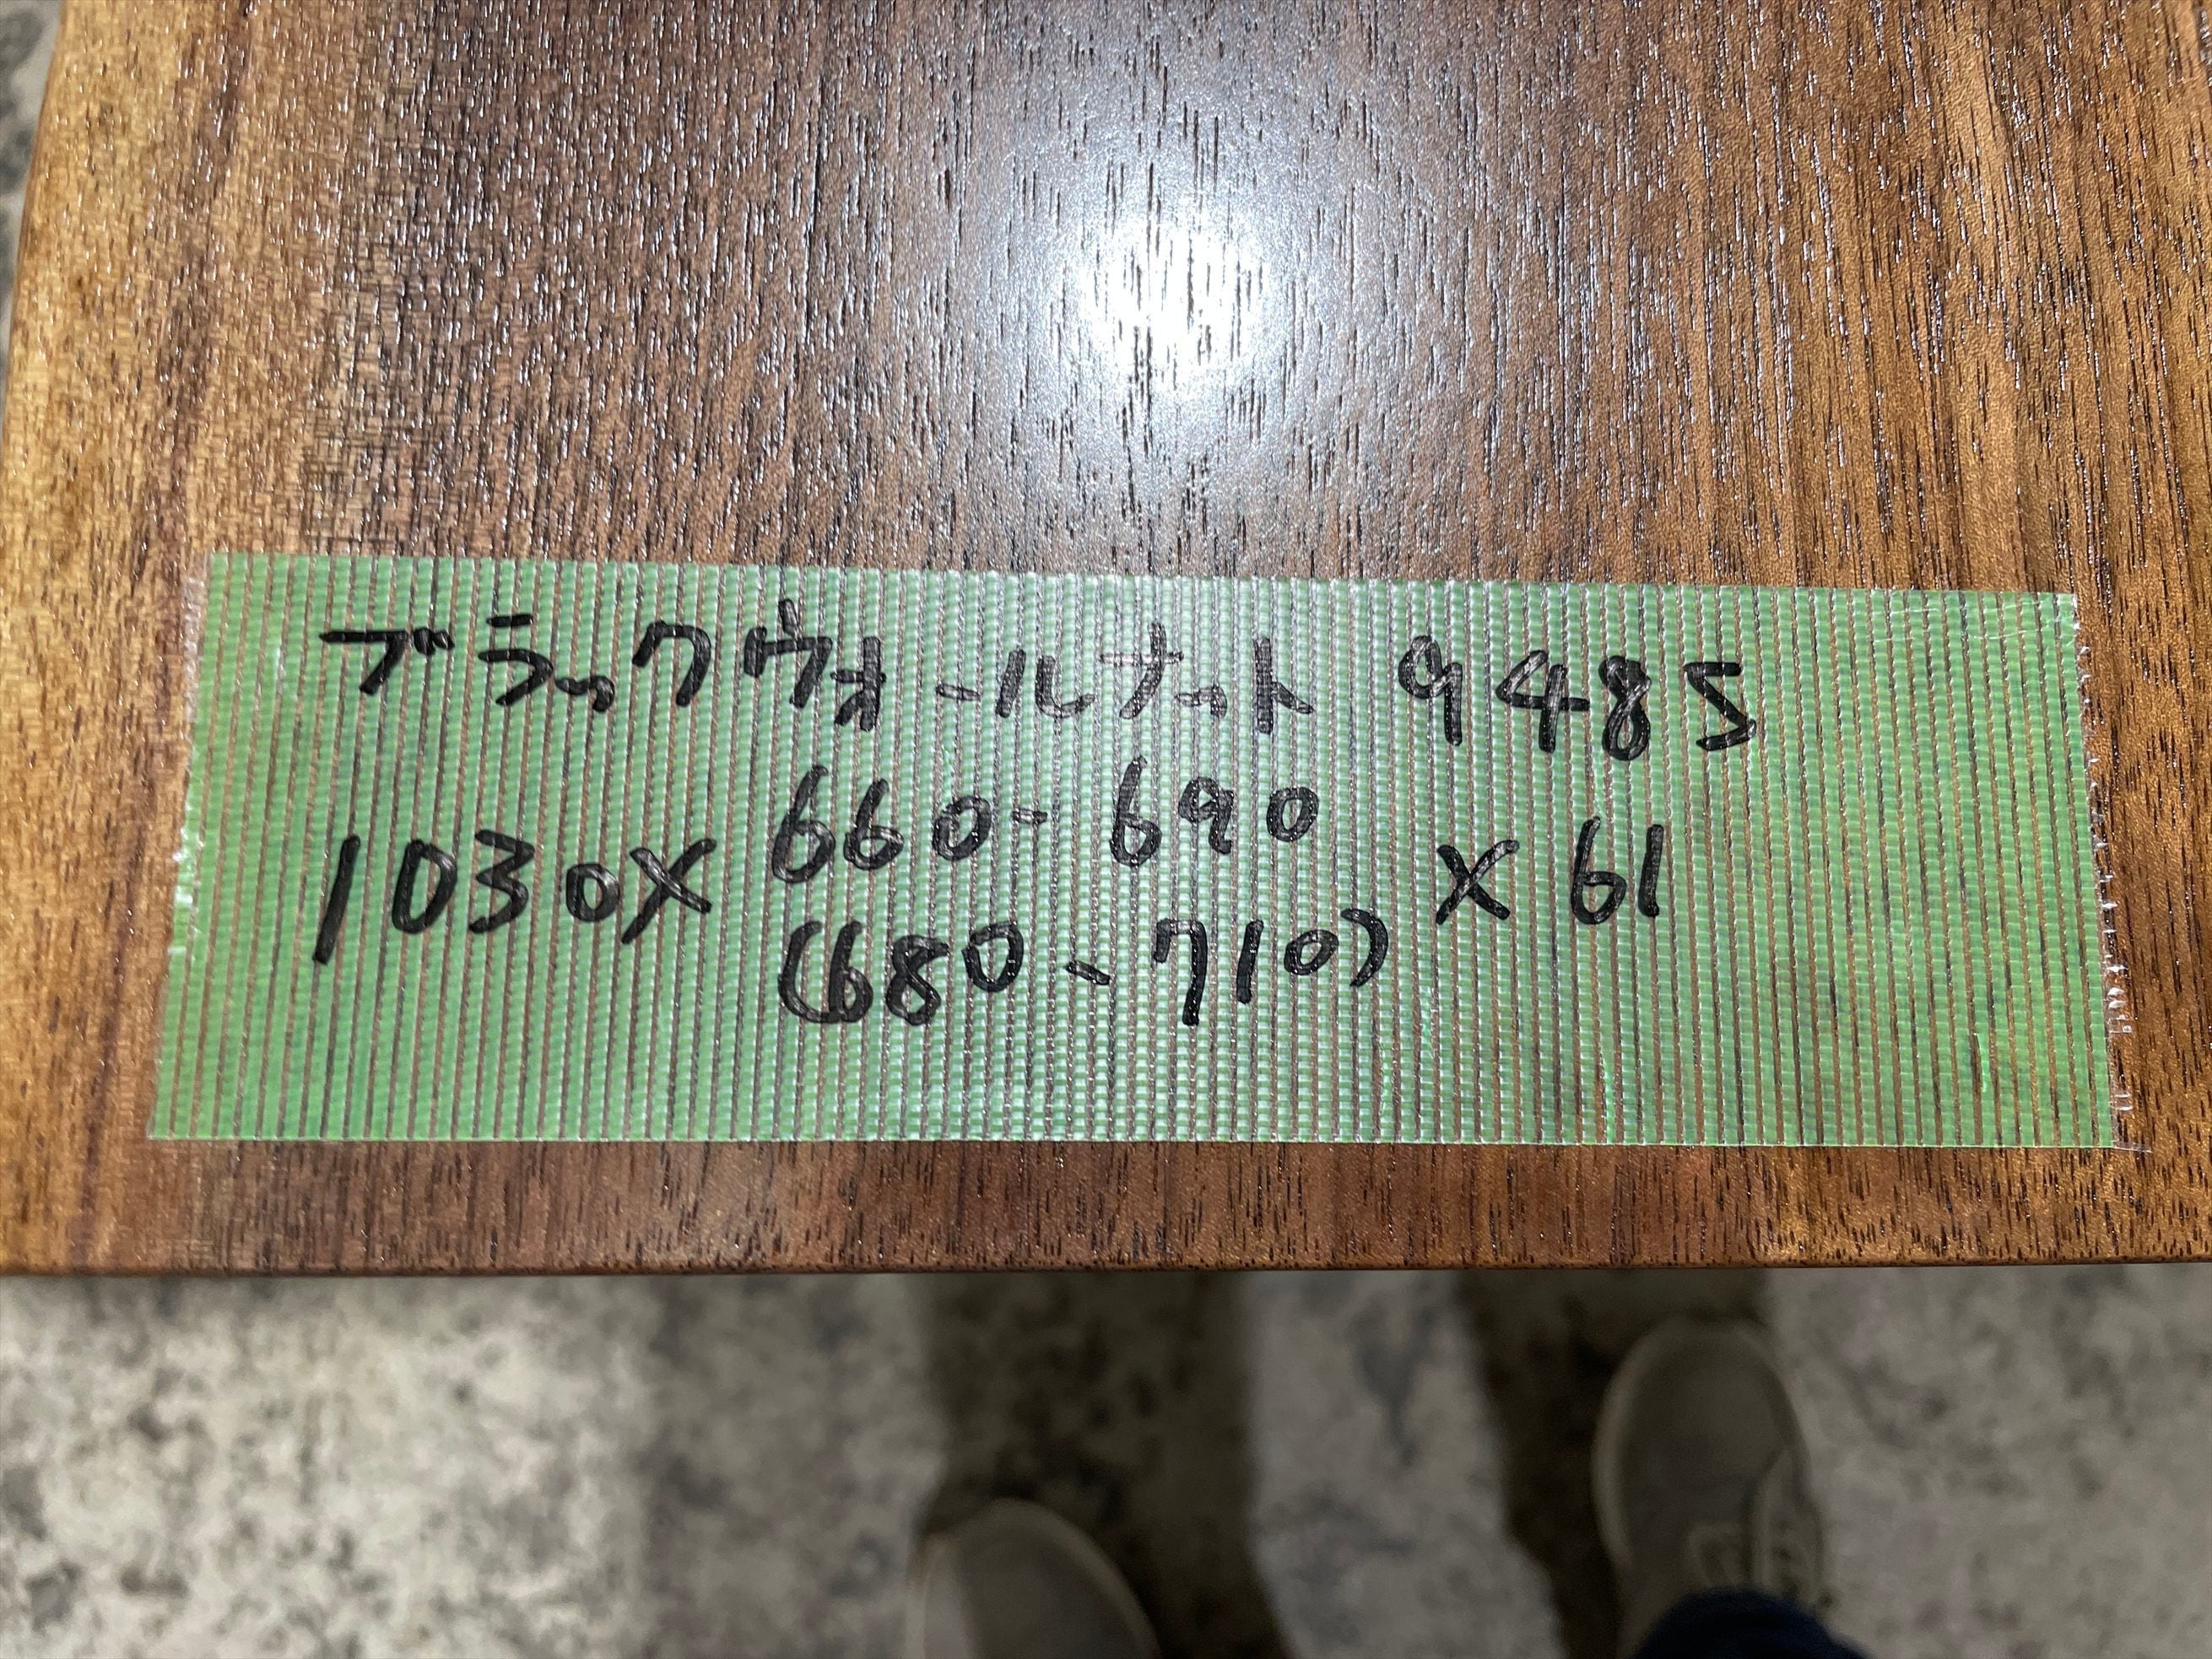 ブラックウォールナット 948S
1030×
660-690
(680-710)
×61